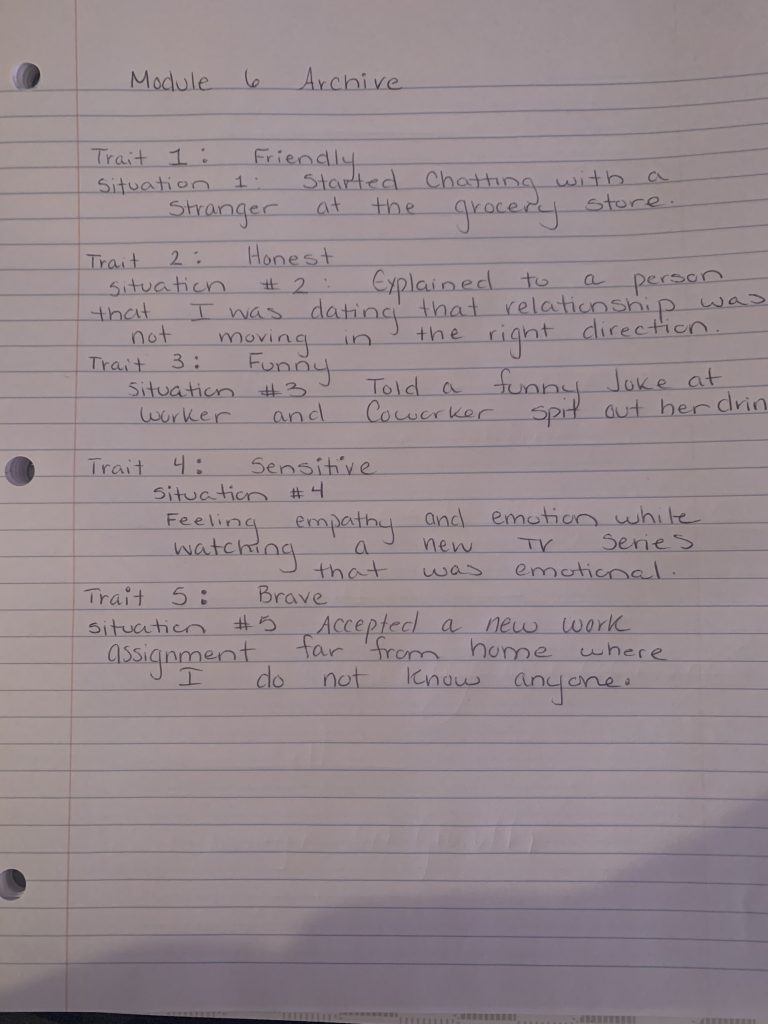 Module 6 Archive
Trait 1: Friendly
Situation 1: Started Chatting with a
Stranger at the grocery store.
Trait 2: Honest
situation #2: Explained to a person
that I was dating that relationship was
not moving in the right direction.
Trait 3: Funny
Situation #3 Told a funny Joke at
worker and Coworker spit out her drin
Trait 4: Sensitive
Situation #4
Feeling empathy and emotion while
watching a new TV Series
that was emotional.
Trait 5: Brave
situation #5 Accepted a new work
assignment far from home where
I do not know anyone.